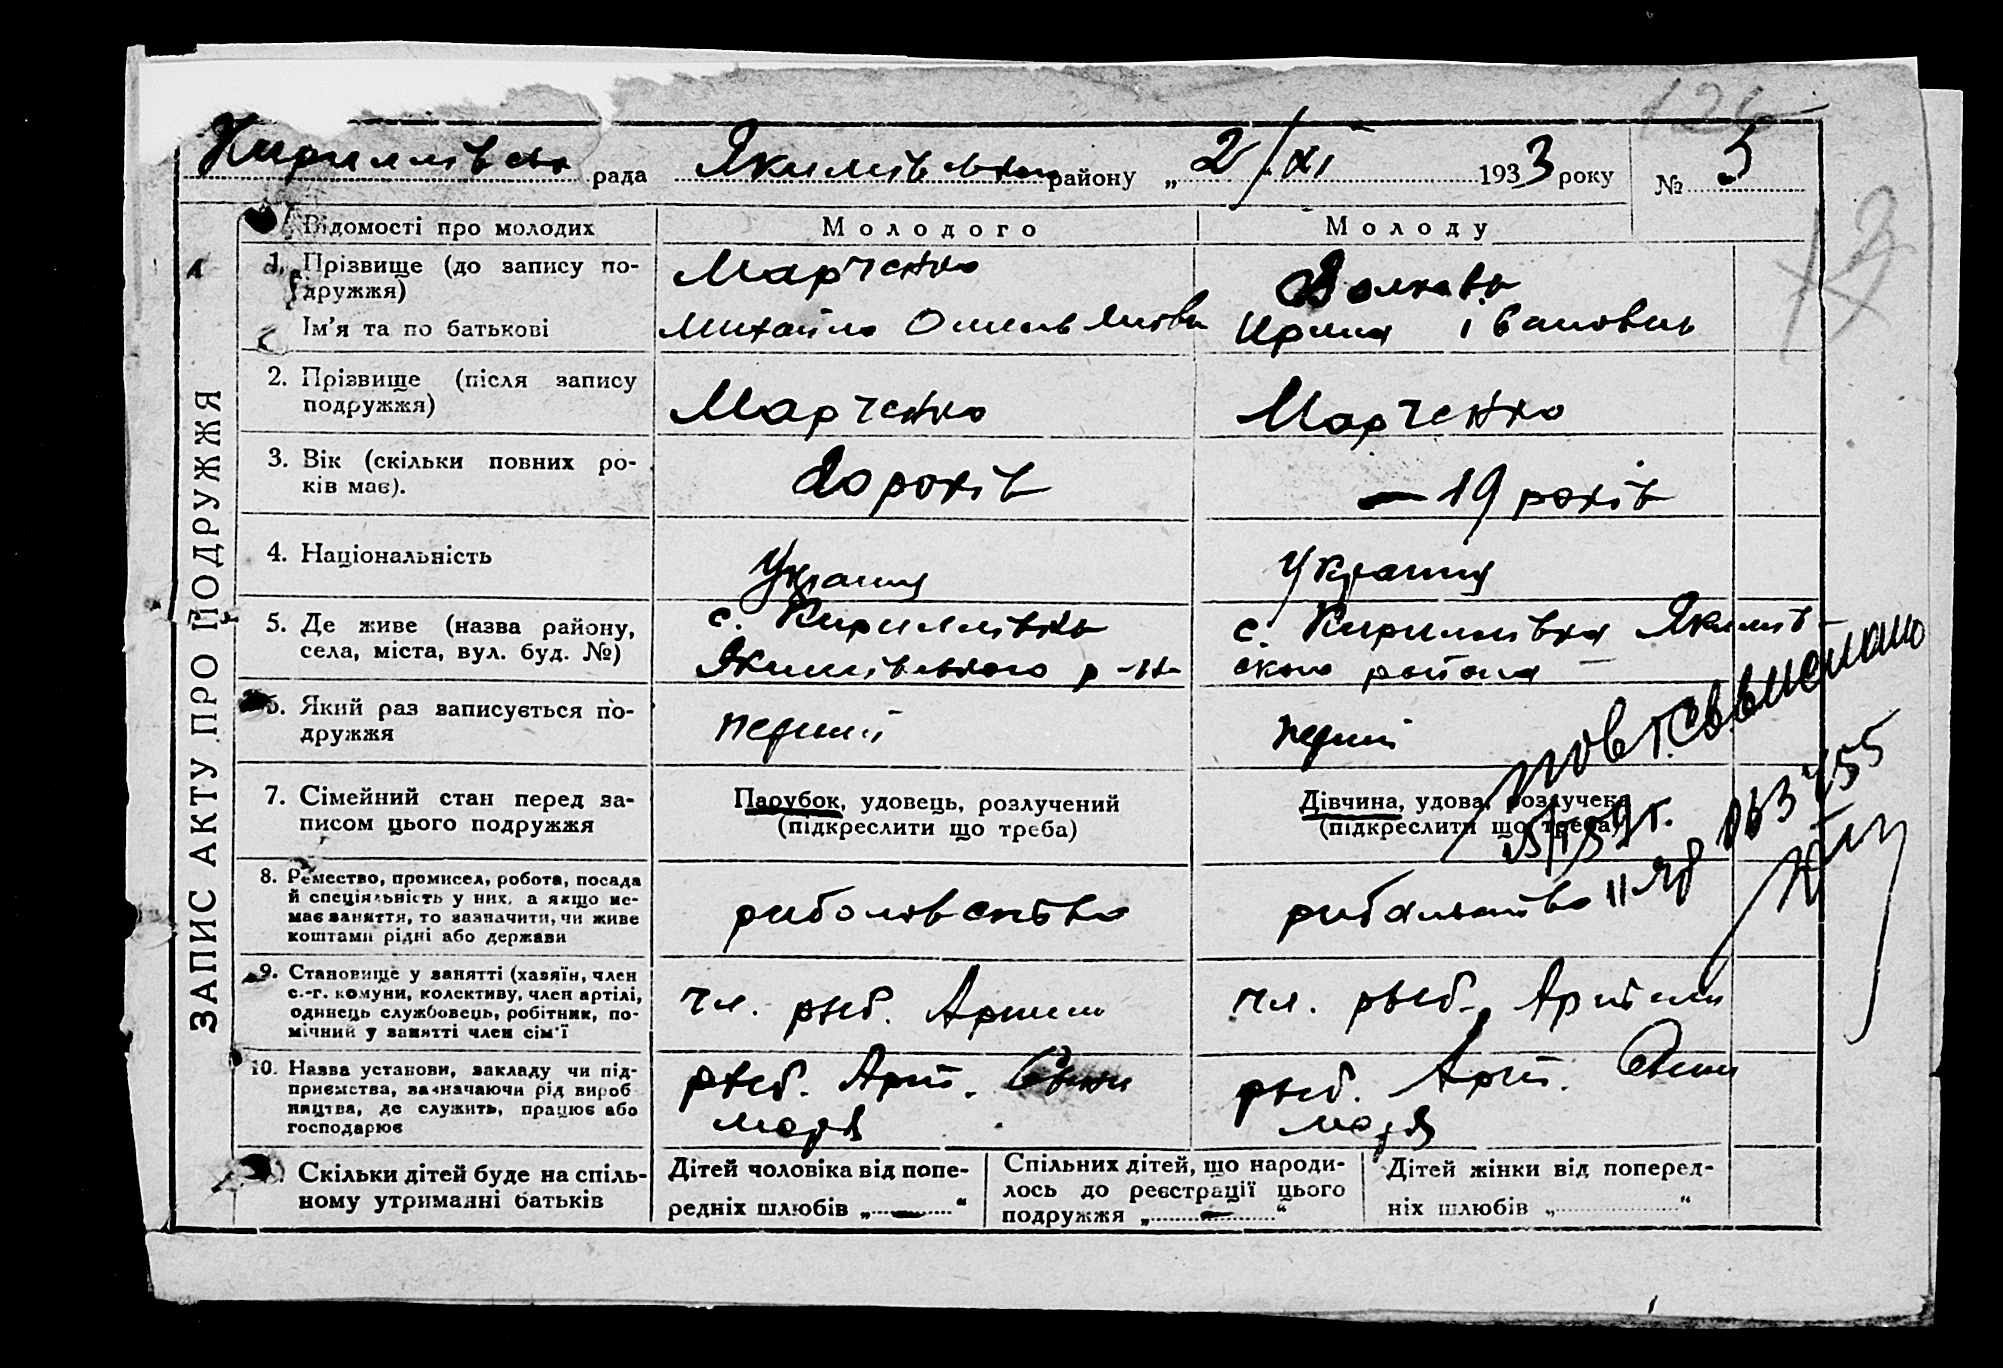 Кириллівська рада Якимівського району „2/XI 1933 року № 5
126
Відомості про молодих Молодого Молоду
1. Прізвище (до запису по-
дружжя) Марченко Волкова
Ім'я та по батькові Михайло Омельянови Ирина Івановна
2. Прізвище (після запису
подружжя) Марченко Марченко
3. Вік (скільки повних ро-
ків має). 20 років — 19 років
4. Національність Украинц Украинц
5. Де живе (назва району,
села, міста, вул. буд. №)
с. Кириллівка
Якимівського р-н
с. Кириллівка Якимів-
ского района —
6. Який раз записується по-
дружжя перший перши
7. Сімейний стан перед за-
писом цього подружжя
Парубок, удовець, розлучений
(підкреслити що треба)
Дівчина, удова, розлучена
(підкреслити що треба)
8. Ремество, промисел, робота, посада
й спеціяльність у них, а якщо не-
має заняття, то зазначити, чи живе
коштами рідні або держави
риболовство
9. Становище у занятті (хазяїн, член
с.-г. комуни, колективу, член артілі,
одинець службовець, робітник, по-
мічний у занятті член сім'ї
чл. рыб. Артили
чл. рыб. Артили
10. Назва установи, закладу чи під-
приємства, зазначаючи рід вироб
ництва, де служить, працює або
господарює
рыб. Арт.
моря
рыб. Арт.
моря
Скільки дітей буде на спіль-
ному утриманні батьків
Дітей чоловіка від попе-
редніх шлюбів „—“
Спільних дітей, що народи-
лось до реєстрації цього
подружжя „—“
Дітей жінки від поперед-
ніх шлюбів „ “
ЗАПИС АКТУ ПРО ПОДРУЖЖЯ